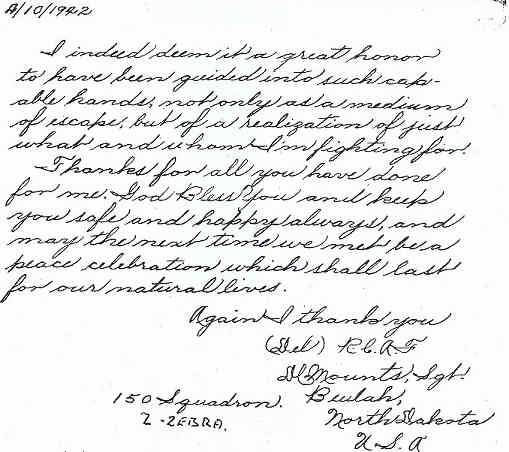 8/10/1942
I indeed deem it a great honor
to have been guided into such cap-
able hands; not only as a medium
of escape; but of a realization of just
what and whom I'm fighting for.
Thanks for all you have done
for me. God Bless You and keep
you safe and happy always, and
may the next time we met be a
peace celebration which shall last
for our natural lives.
Again I thank you
(Del) R.C.A.F
Mounts, Sgt.
150 Squadron. Beulah,
Z-ZEBRA. North Dakota
U.S.A